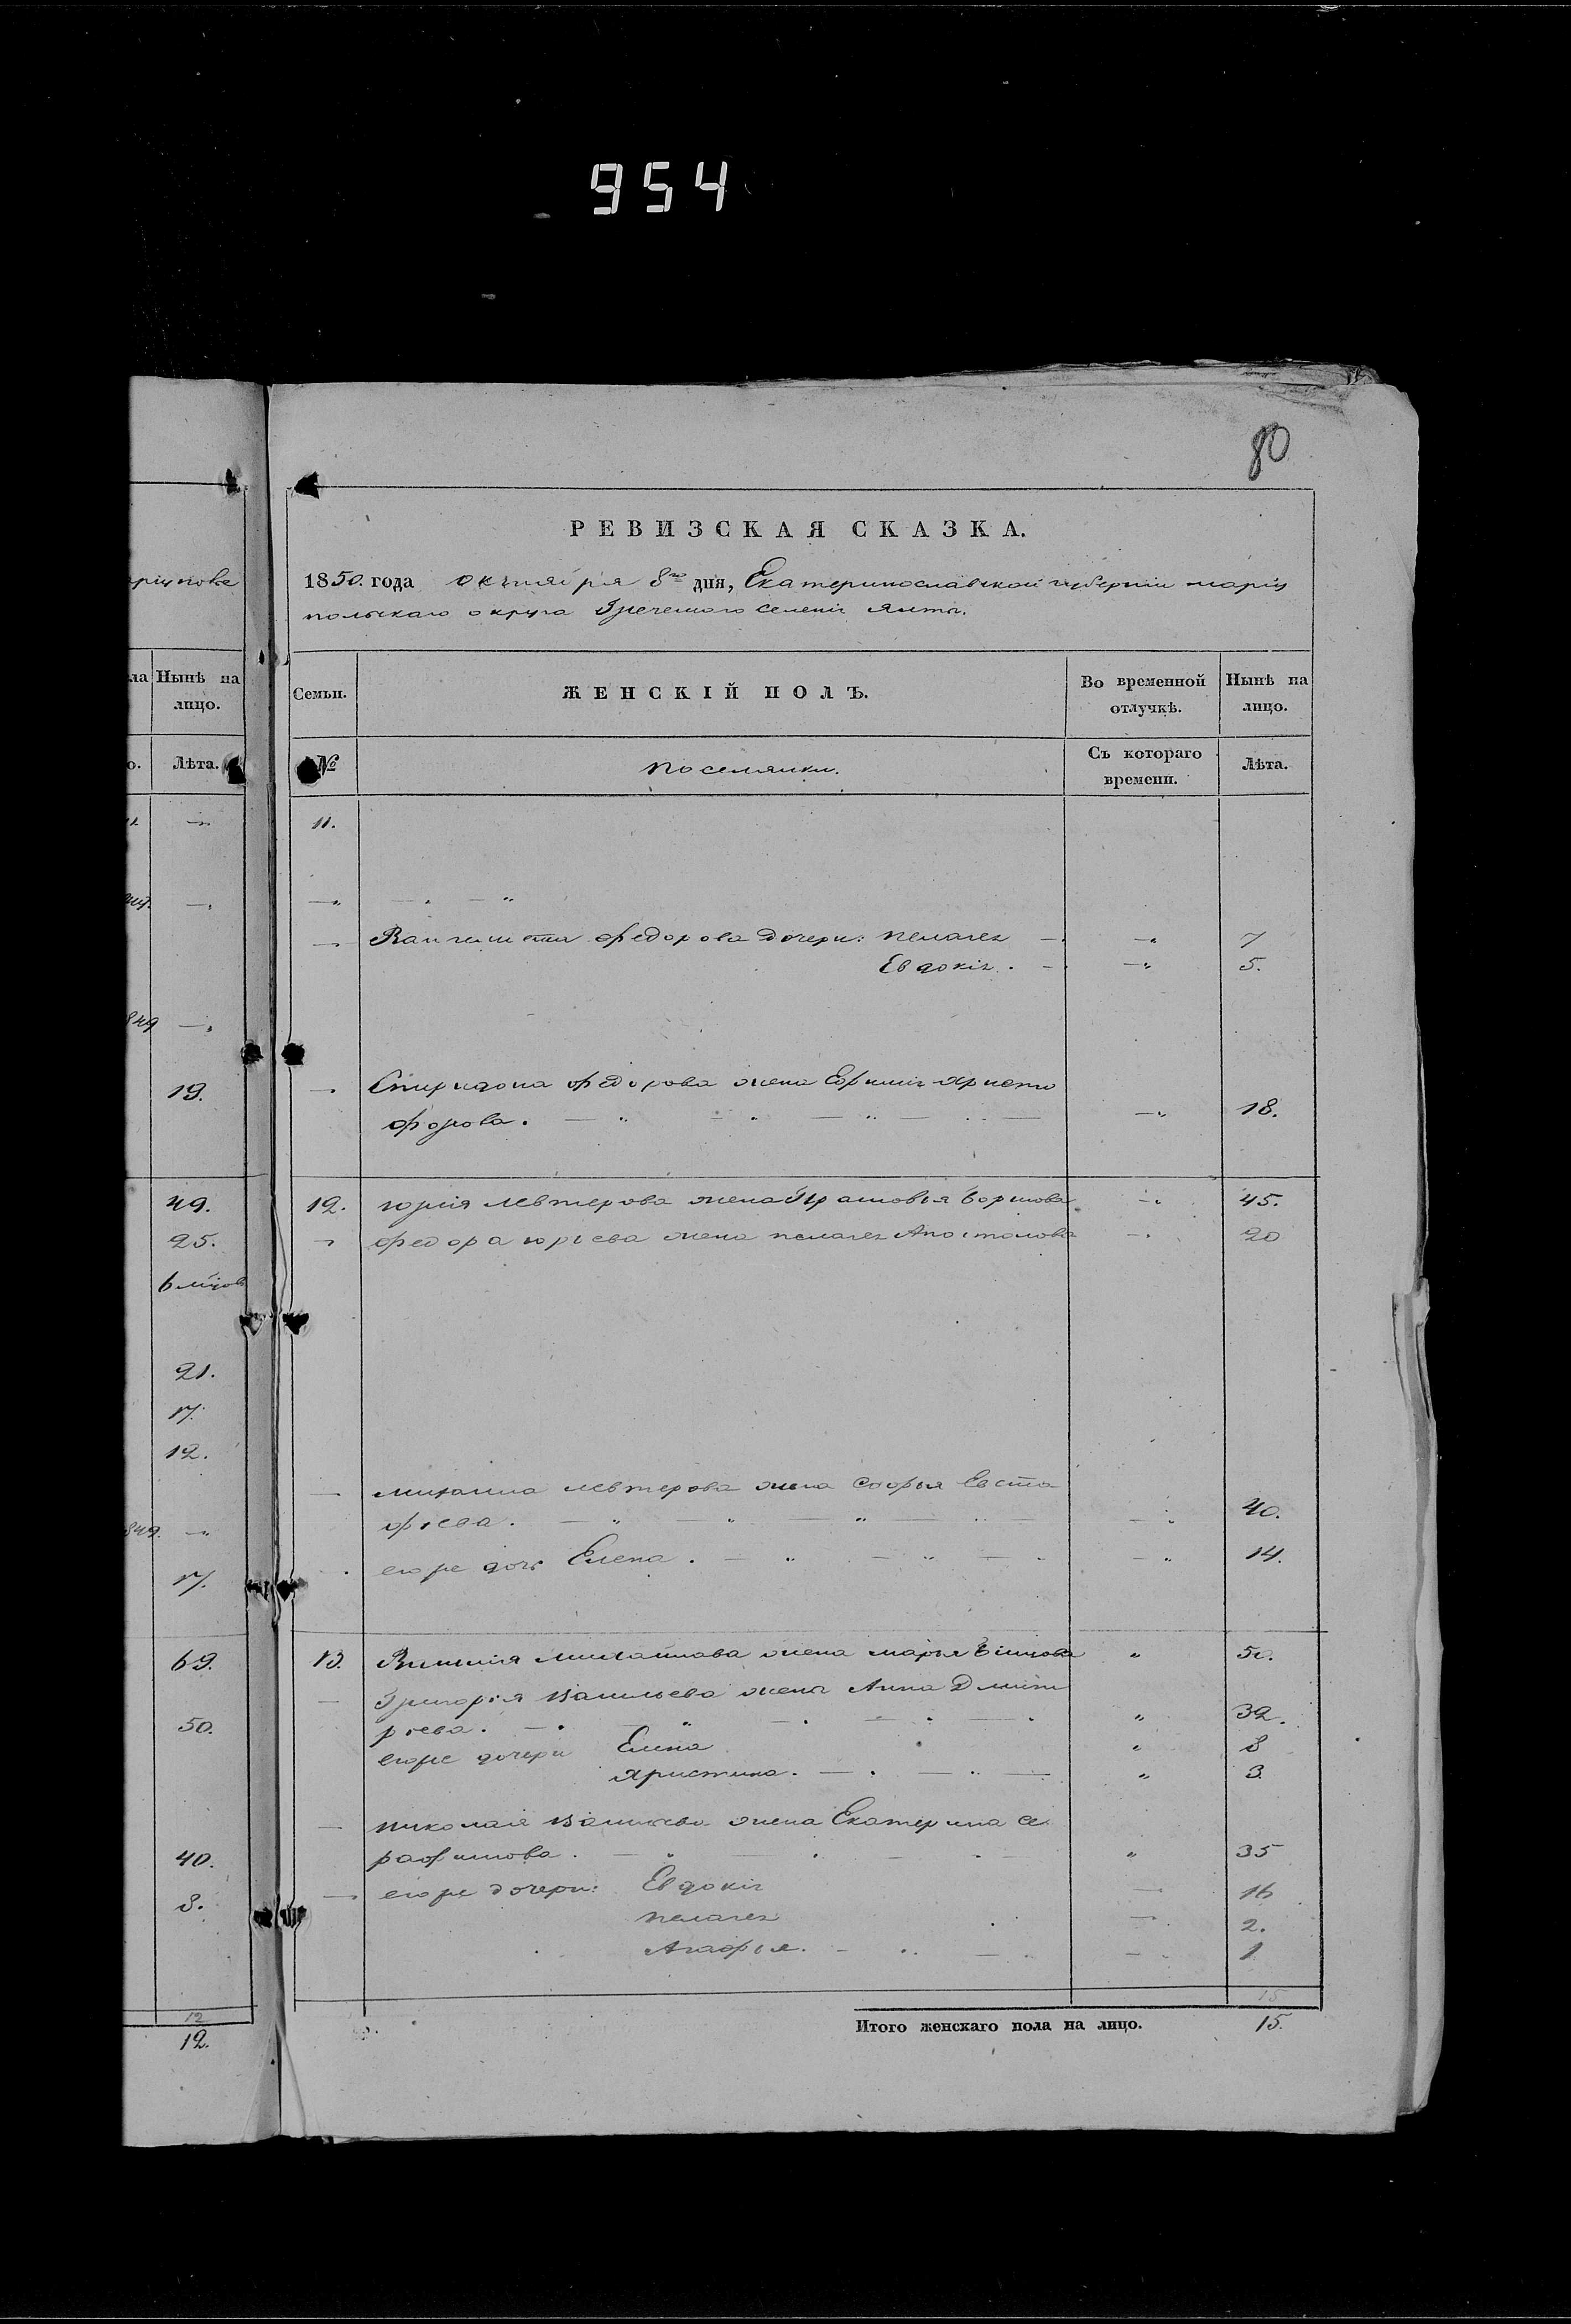 954
80
РЕВИЗСКАЯ СКАЗКА.
1850. года октября 8го дня, Екатеринославской губерніи маріу
польскаго округа Греческаго селенія Ялта.
ла Нынѣ на
лицо.
о. Лѣта.
849
19.
49.
25.
21.
17.
12.
849.
17.
69.
50.
40.
8.
12
12.
Семьи. ЖЕНСКІЙ ПОЛЪ. Во временной Нынѣ на
отлучкѣ. лицо.
№ поселянки. Съ котораго Лѣта.
времени.
11.
федорова дочери: пелагея 7
Евдокія. 5.
Спиридона федорова жена Ефимія христо
форова. 18.
12. юрія левтерова жена 45.
федора юрьева жена пелагея Апостолова 20
михаила левтерова жена софья Евста
фіева. 40.
его же дочь Елена. 14.
13. михайлова жена марья 50.
Григорія васильева жена Анна Дмит
ріева. 32.
его же дочери Елена 8
христина. 3.
николая васильева жена Екатерина се
рафимова. 35
его же дочери: Евдокія 16
пелагея 2.
Агафья. 1
15
Итого женскаго пола на лицо. 15.